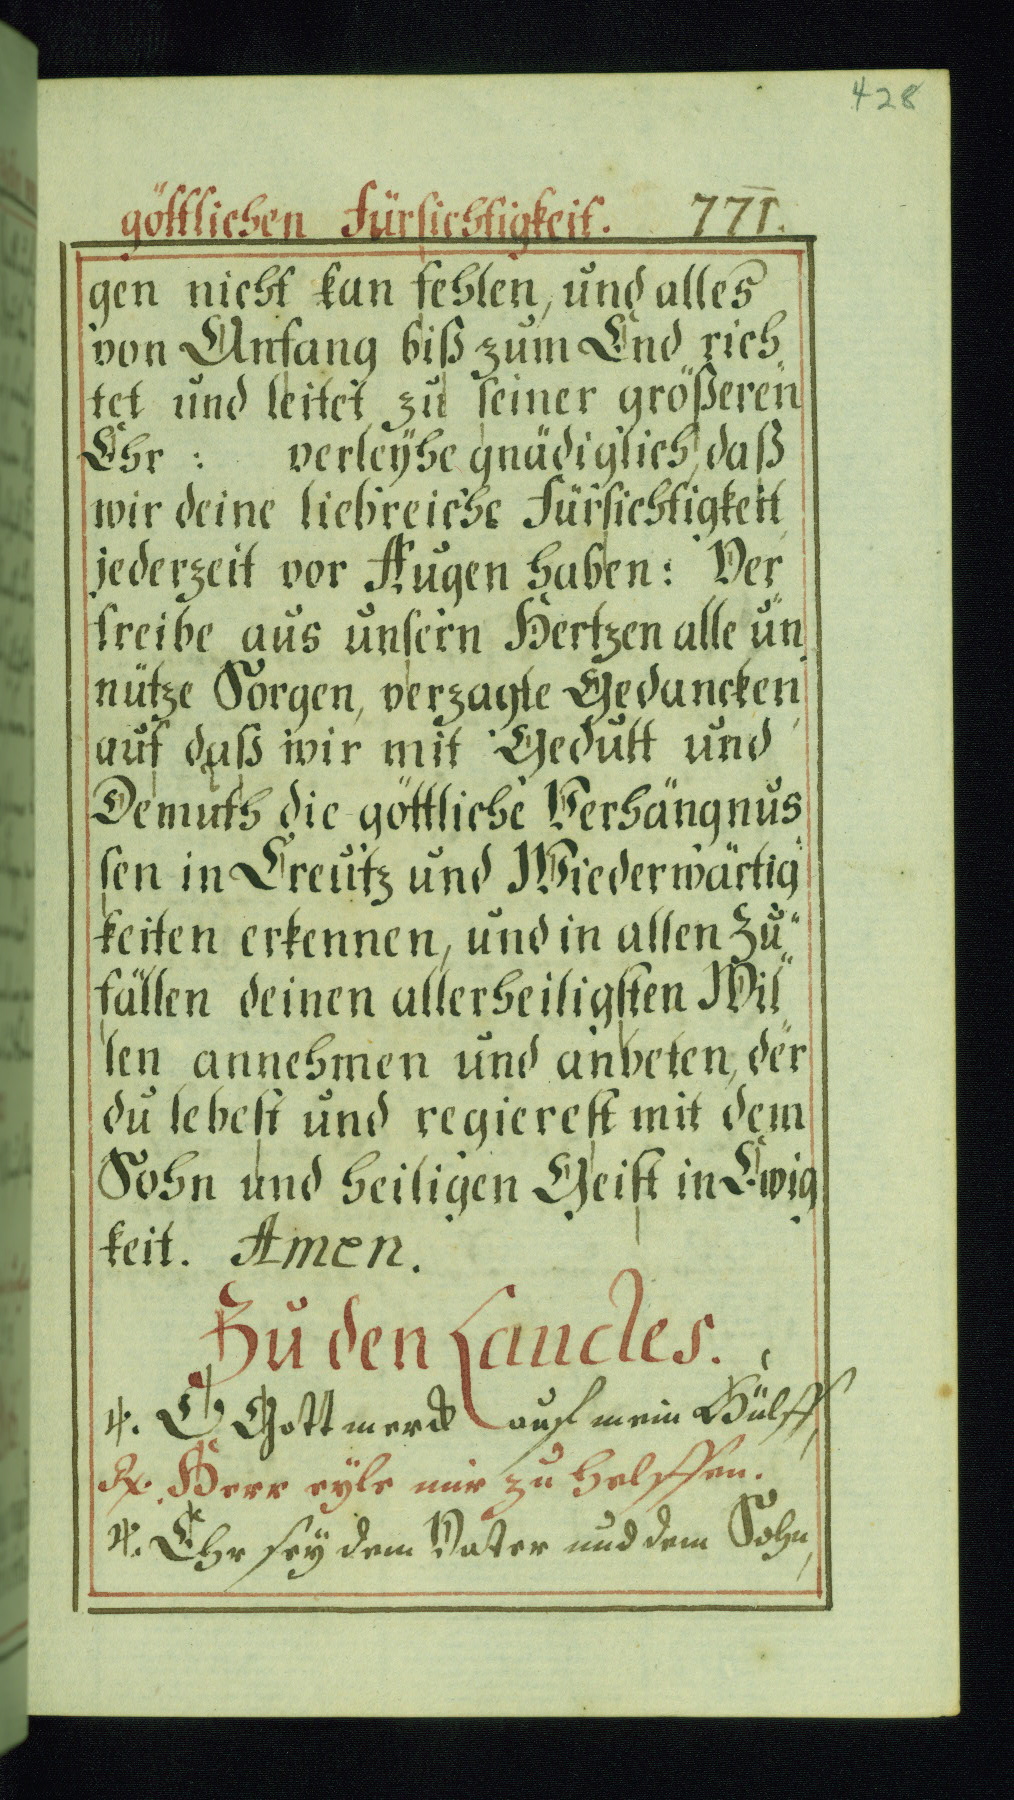 428
göttlichen Fürsichtigkeit. 771.
gen nicht kan fehlen, und alles
von Anfang biß zum End rich
tet und leitet zu seiner größeren
Ehr : verleÿhe gnädiglich, daß
wir deine liebreiche Fürsichtigkeit
jederzeit vor Augen haben: Ver
treibe aus unsern Hertzen alle un
nütze Sorgen, verzagte Gedancken
auf daß wir mit Gedult und
Demuth die göttliche Verhängnus
sen in Creutz und Wiederwärtig
keiten erkennen, und in allen Zu
fällen deinen allerheiligsten Wil
len annehmen und anbeten, der
du lebest und regierest mit dem
Sohn und heiligen Geist in Ewig
keit. Amen.
Zu den Laudes.
℣. O Gott merck auf mein Hülff,
℟. Herr eyle mir zu helffen.
℣. Ehr seÿ dem Vater und dem Sohn,